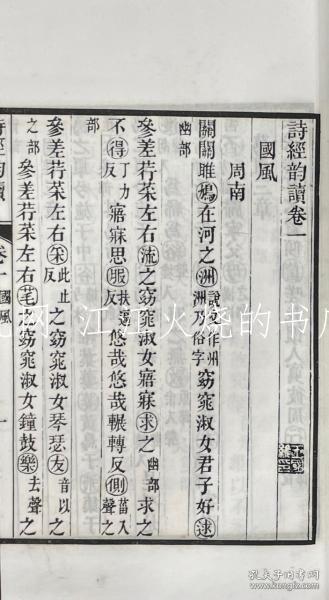 詩經韵讀卷一
國風
周南
關關雎鳩在河之洲說文作州洲乃俗字窈窕淑女君子好逑
幽部
參差荇菜左右流之窈窕淑女寤寐求之幽部求之
不得丁力反寤寐思服扶逼反悠哉悠哉輾轉反側菑入聲之
部
參差荇菜左右采此止反之窈窕淑女琴瑟友音以之
之部參差荇菜左右芼之窈窕淑女鐘鼓樂去聲之
國風
孔夫子旧书网